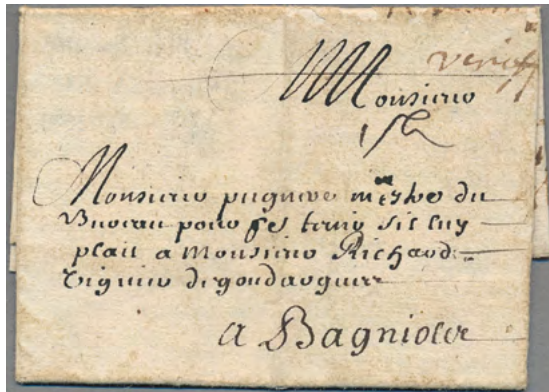 Monsieur
Monsieur pugneve mestre du
Bureau pour fes tenir sil luy
plait a Monsieur Richard
viguier de goudargues
a Bagniolee